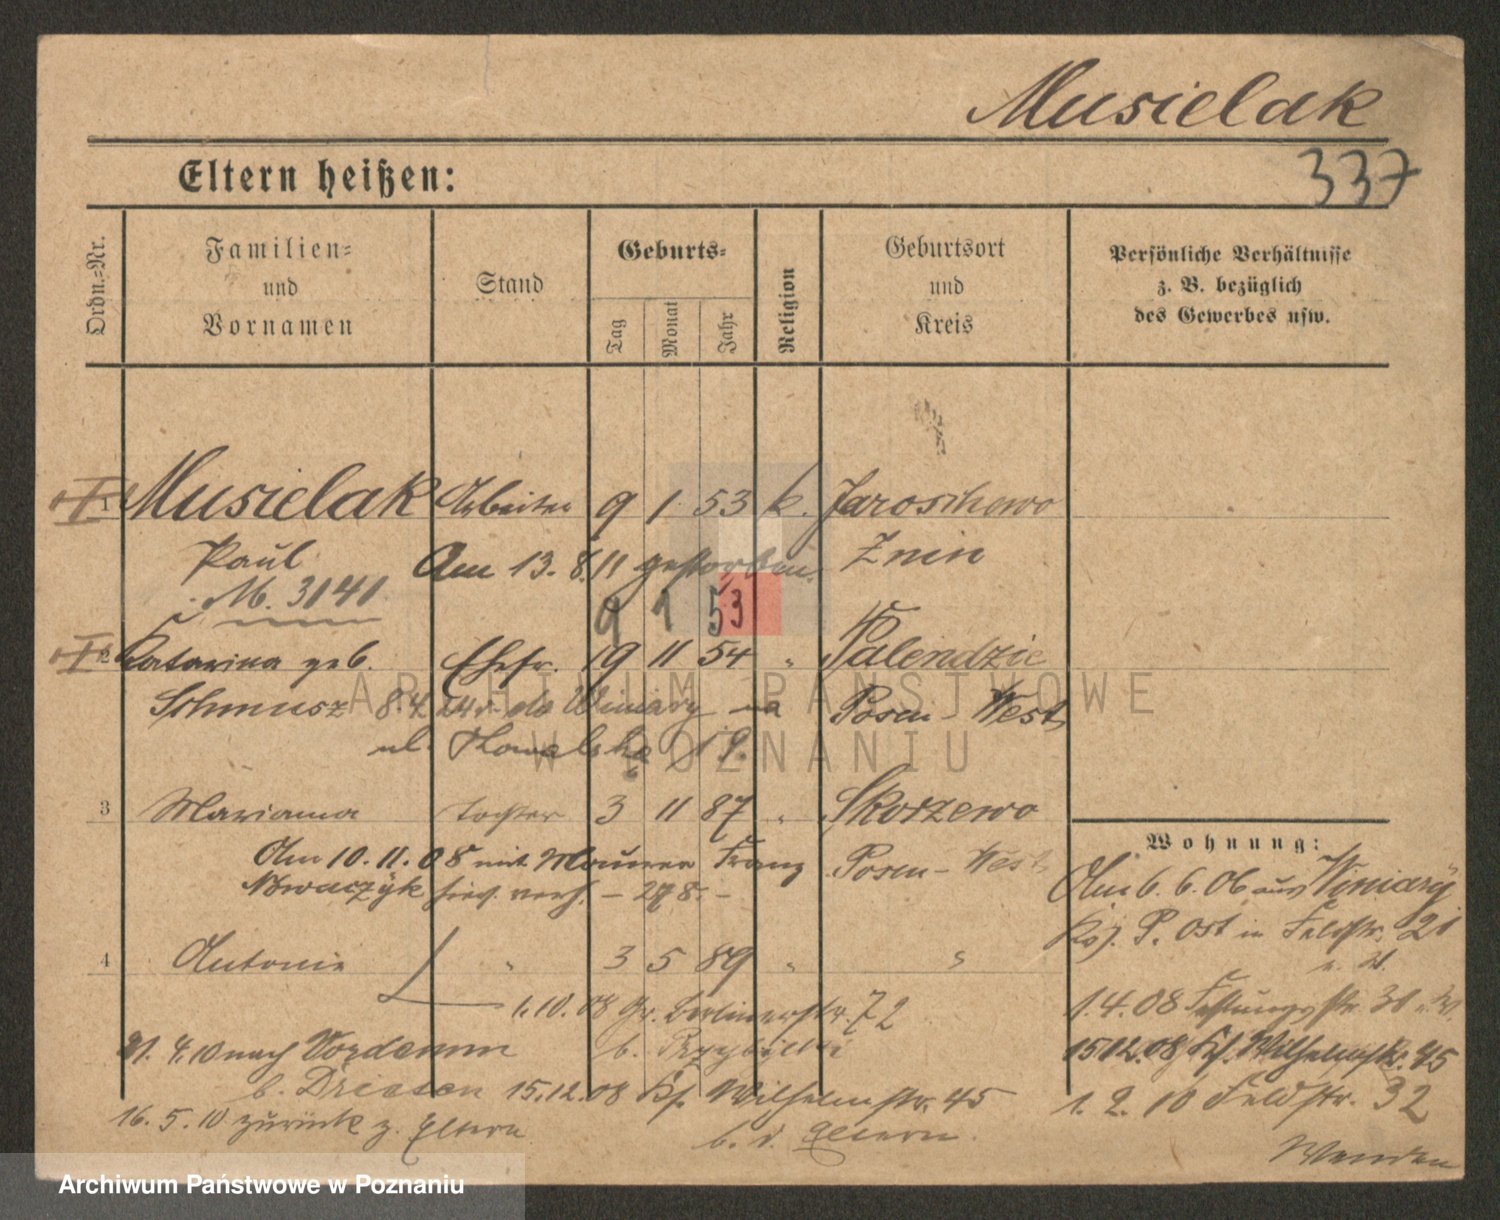 Musielak
Eltern heißen:
337
Ordn.-Nr.
Familien-
und
Vornamen
Stand
Geburts-
Tag
Monat
Jahr
Religion
Geburtsort
und
Kreis
Persönliche Verhältnisse
z. B. bezüglich
des Gewerbes usw.
1 Musielak Arbeiter 9 1 53 k. Jaroschewo
Paul Am 13. 8. 11 gestorben. Znin
M. 3141
9 1 53
2 Katarina geb. Ehefr. 19 11 54 " Palendzie
Schmusz 8.4.24 r. do Winiary na Posen-West
ul. 19.
3 Marianna Tochter 3 11 87 " Skorzewo
Am 10. 11. 08 mit Maurer Franz Posen-West
Nowaczyk verh. -
4 Antonie " 3 5 89 " "
1.10.08 Gr. Berlinerstr. 72
21. 4. 10 nach Vordamm b. Przybylski
b. Driesen 15.12.08 Ks. Wilhelmstr. 45
16. 5. 10 zurück z. Eltern b. d. Eltern.
Wohnung:
Am 6. 6. 06 aus Winiary
Krs. P. Ost in Feldstr. 21
1.4.08 Festungsstr. 31
15.12.08 Ks. Wilhelmstr. 45
1. 2. 10 Feldstr. 32
Wenden
ARCHIWUM PAŃSTWOWE
W POZNANIU
Archiwum Państwowe w Poznaniu